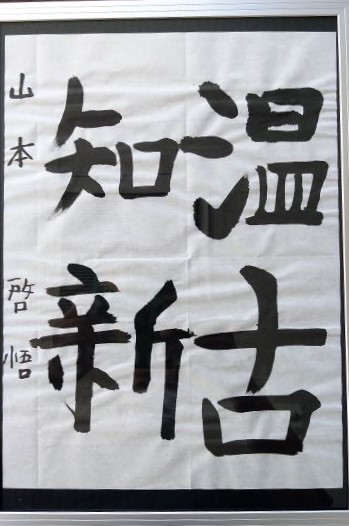 温古
知新
山本 啓悟